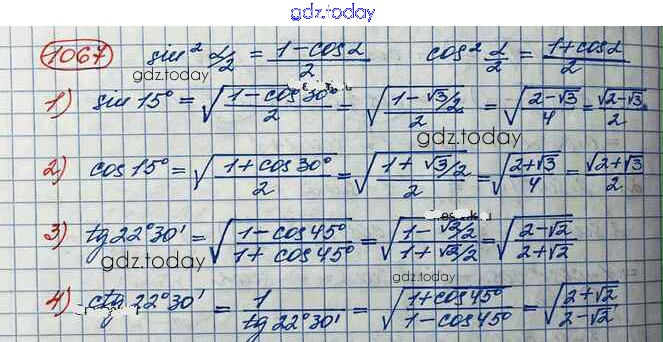 gdz.today
1067 sin² α/2 = (1-cosα)/2 cos² α/2 = (1+cosα)/2
gdz.today
1) sin 15° = √((1-cos 30°)/2) = √((1-√3/2)/2) = √((2-√3)/4) = √(2-√3)/2
gdz.today
2) cos 15° = √((1+cos 30°)/2) = √((1+√3/2)/2) = √((2+√3)/4) = √(2+√3)/2
3) tg 22°30' = √((1-cos 45°)/(1+cos 45°)) = √((1-√2/2)/(1+√2/2)) = √((2-√2)/(2+√2))
gdz.today
gdz.today
4) ctg 22°30' = 1/(tg 22°30') = √((1+cos 45°)/(1-cos 45°)) = √((2+√2)/(2-√2))